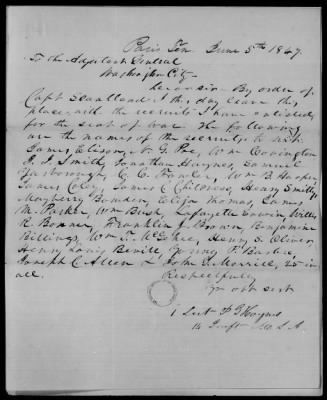 Paris Ten June 5th 1847.
To the Adjutant General
Washington City
By order of
Capt Scantland I this day leave this
place with the recruits I have enlisted
for the seat of war. The following
are the names of the recruits to wit:
James Elison, N. G. Poe, Wm Covington
J. J. Smith, Jonathan Haynes, Samuel
Yarborough, C. C. Fowler, Wm B. Harper
James Coley, James C Childress, Henry Smith,
Mayberry Bowden, Elija Thomas, James
M. Parker, Wm Bush, Lafayette Cowin, Willis
R. Bonner, Franklin J. Brown, Benjamine
Billings, Wm T. McGehee, Henry S. Oliver,
Henry Louis Bevill, Young F.
Joseph C. Allen & John G. Merrill, 25 in
all Respectfully
Yr obt svt
1 Lieut P G Haynes
14 Inft U.S.A.